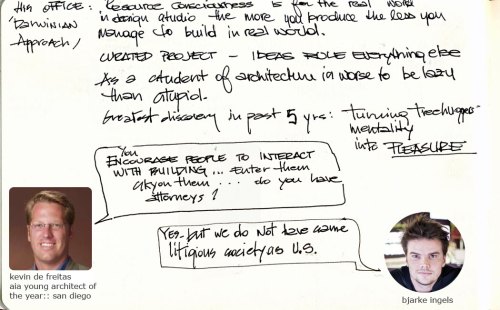 his OFFICE: Resource Consciousness is for the real world
'Darwinian in design studio the more you produce the less you
Approach/ manage to build in real world.
CURATED PROJECT - IDEAS RULE EVERYTHING ELSE
As a student of architecture is worse to be lazy
than stupid.
Greatest discovery in past 5 yrs: turning treehuggers
mentality
into PLEASURE
You
ENCOURAGE PEOPLE TO INTERACT
WITH BUILDING ... Enter them
skyon them ... do you have
attorneys?
Yes- but we do not have same
litigious society as U.S.
kevin de freitas
aia young architect of
the year:: san diego
bjarke ingels